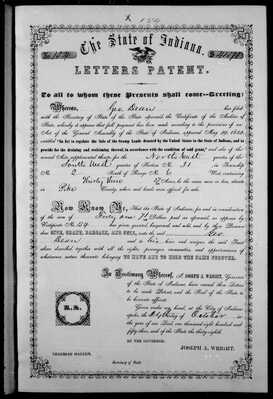 154
The State of Indiana.
LETTERS PATENT.
To all to whom these Presents shall come—Greeting:
Whereas, Geo Bean has filed
with the Secretary of State of the State aforesaid the Certificate of the Auditor of
State, whereby it appears that full payment has been made according to the provisions of an
Act of the General Assembly of the State of Indiana, approved May 29, 1852,
entitled "An Act to regulate the Sale of the Swamp Lands donated by the United States to the State of Indiana, and to
provide for the draining and reclaiming thereof, in accordance with the condition of said grant," and also of the
several Acts supplemental thereto, for the North East quarter of the
South West quarter of Section No. 31 in Township
No. 2 of Range No. 6 West containing
Acres more or less, situate in
Pike County, where said lands were offered for sale.
Now Know Ye, That the State of Indiana, for and in consideration
of the sum of Dollars paid as aforesaid, as appears by
Certificate No. 154 has given, granted, bargained and sold, and by these Presents
does GIVE, GRANT, BARGAIN, AND SELL, unto the said Geo
Bean and to his heirs and assigns the said Tract
above described, together with all the rights, privileges, immunities, and appurtenances of
whatsoever nature thereunto belonging TO HAVE AND TO HOLD THE SAME FOREVER.
In Testimony Whereof, I JOSEPH A. WRIGHT, Governor
of the State of Indiana, have caused these Letters
to be made Patent, and the Seal of the State to
be hereunto affixed.
Given under my hand, at the City of Indianapolis,
the day of October in
the year of our Lord, one thousand eight hundred and
fifty and of the State the thirty-eighth
BY THE GOVERNOR,
JOSEPH A. WRIGHT.
Secretary of State